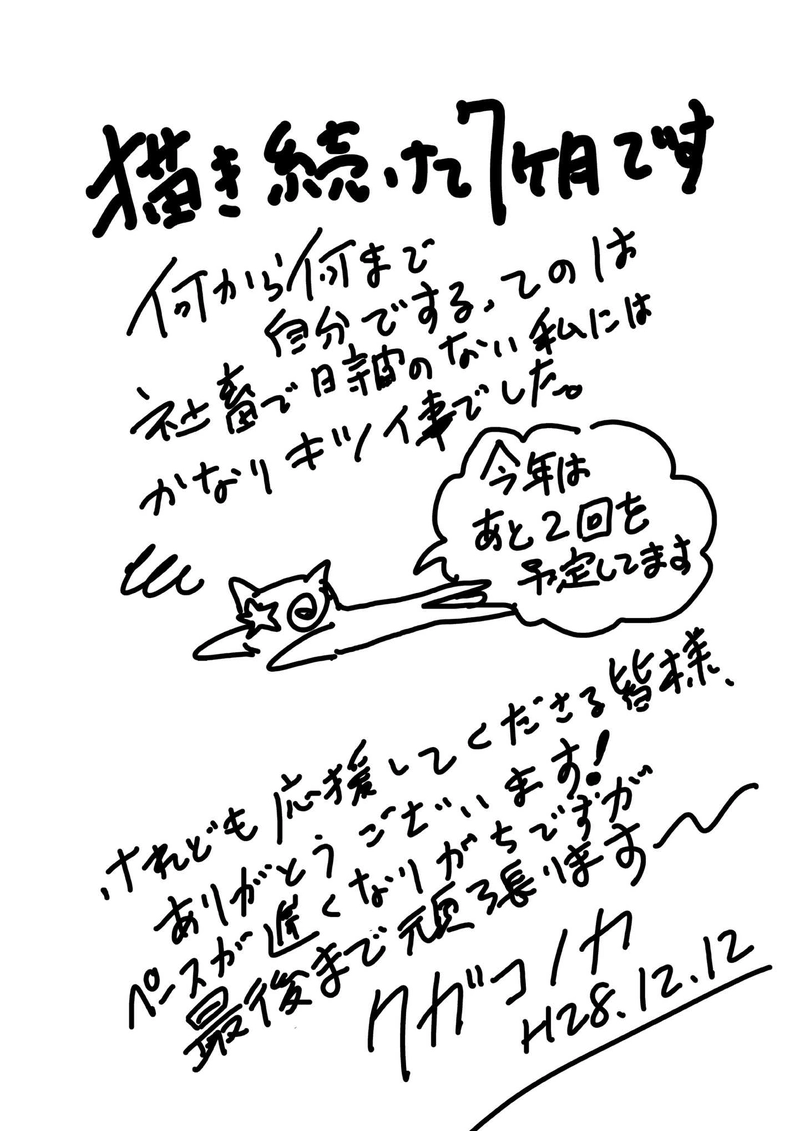 描き続けて7ヶ月です
何から何まで
自分でする、てのは
社畜で日神のない私には
かなりキツイ事でした。
今年は
あと2回を
予定してます
けれども応援してくださる皆様、
ありがとうございます!
ペースが遅くなりがちですが
最後まで頑張ります〜
クガコノカ
H28.12.12